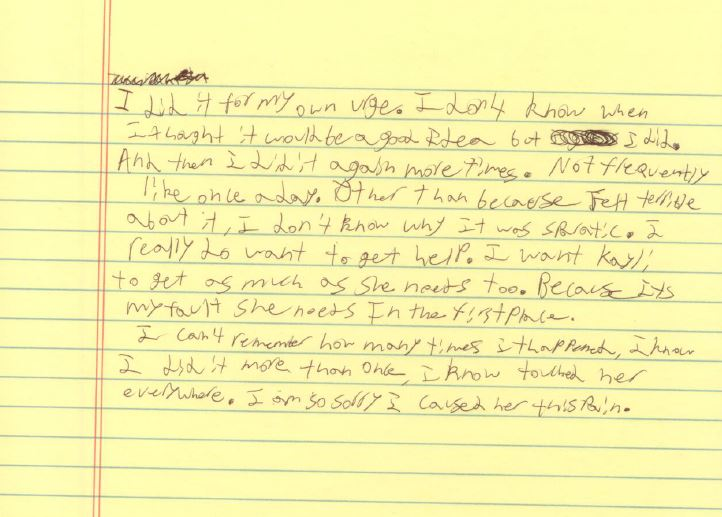 I did it for my own urge. I don't know when
I thought it would be a good Idea but I did.
And then I did it again more times. Not frequently
like once a day. Other than because I felt terrible
about it, I don't know why It was sporatic. I
really do want to get help. I want Kayli
to get as much as she needs too. Because its
my fault she needs In the first place.
I can't remember how many times it happened, I know
I did it more than once, I know touched her
everywhere. I am so sorry I caused her this pain.